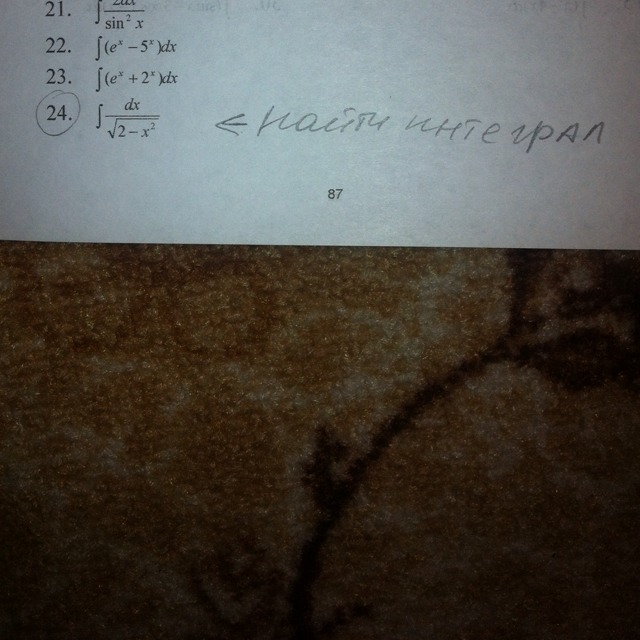 21. ∫ 2dx / sin² x
22. ∫(eˣ − 5ˣ)dx
23. ∫(eˣ + 2ˣ)dx
24. ∫ dx / √2 − x² < найти интеграл
87